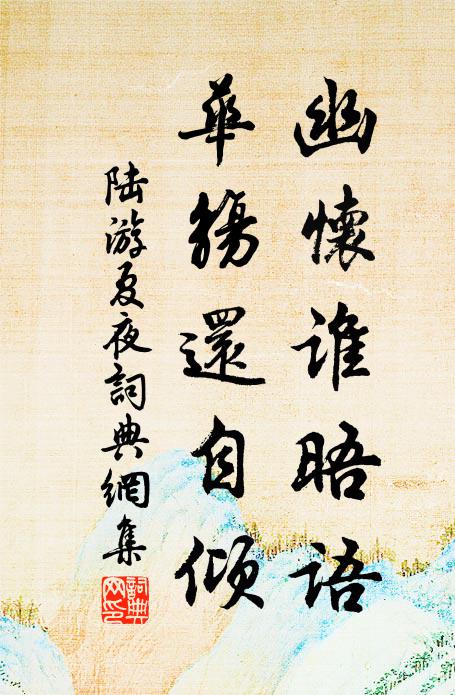 幽懷誰晤語
華觴還自傾
陆游夏夜詞典網集
詞典網印